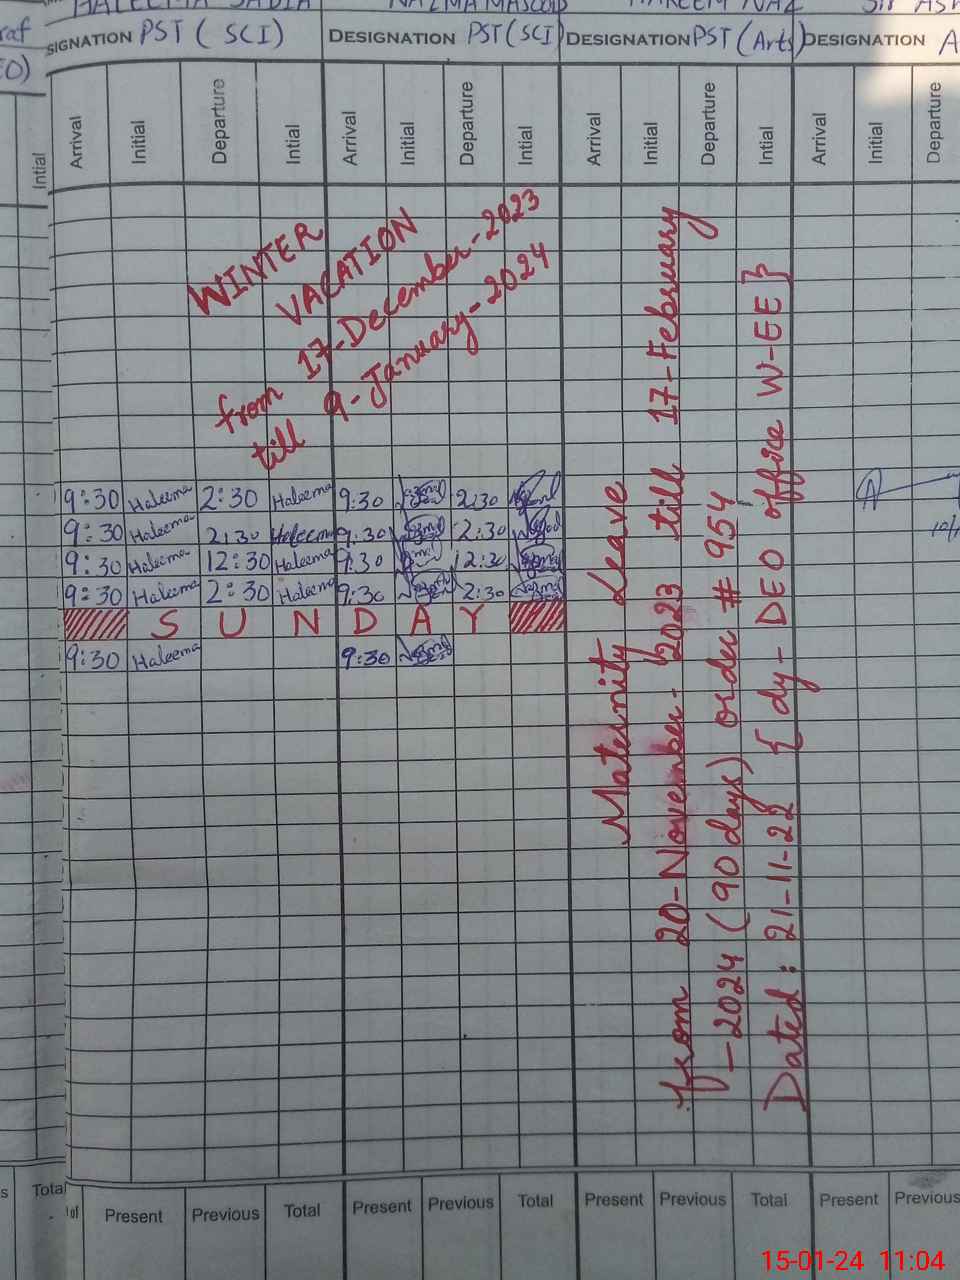 HALEEMA SADIA NAZMA MASOOD
raf SIGNATION PST (SCI) DESIGNATION PST (SCI) DESIGNATION PST (Arts) DESIGNATION A
EO)
Intial Arrival Initial Departure Intial Arrival Initial Departure Intial Arrival Initial Departure Intial Arrival Initial Departure
WINTER
VACATION
from 17-December-2023
till 9-January-2024
9:30 Haleema 2:30 Haleema 9:30 2:30
9:30 Haleema 2:30 Haleema 9:30 2:30
9:30 Haleema 12:30 Haleema 9:30 12:30
9:30 Haleema 2:30 Haleema 9:30 2:30
S U N D A Y
9:30 Haleema 9:30
Maternity Leave
from 20-November-2023 till 17-February
-2024 (90 days) order # 954
Dated: 21-11-22 { dy- DEO office W-EE }
s Total of Present Previous Total Present Previous Total Present Previous Total Present Previous
15-01-24 11:04